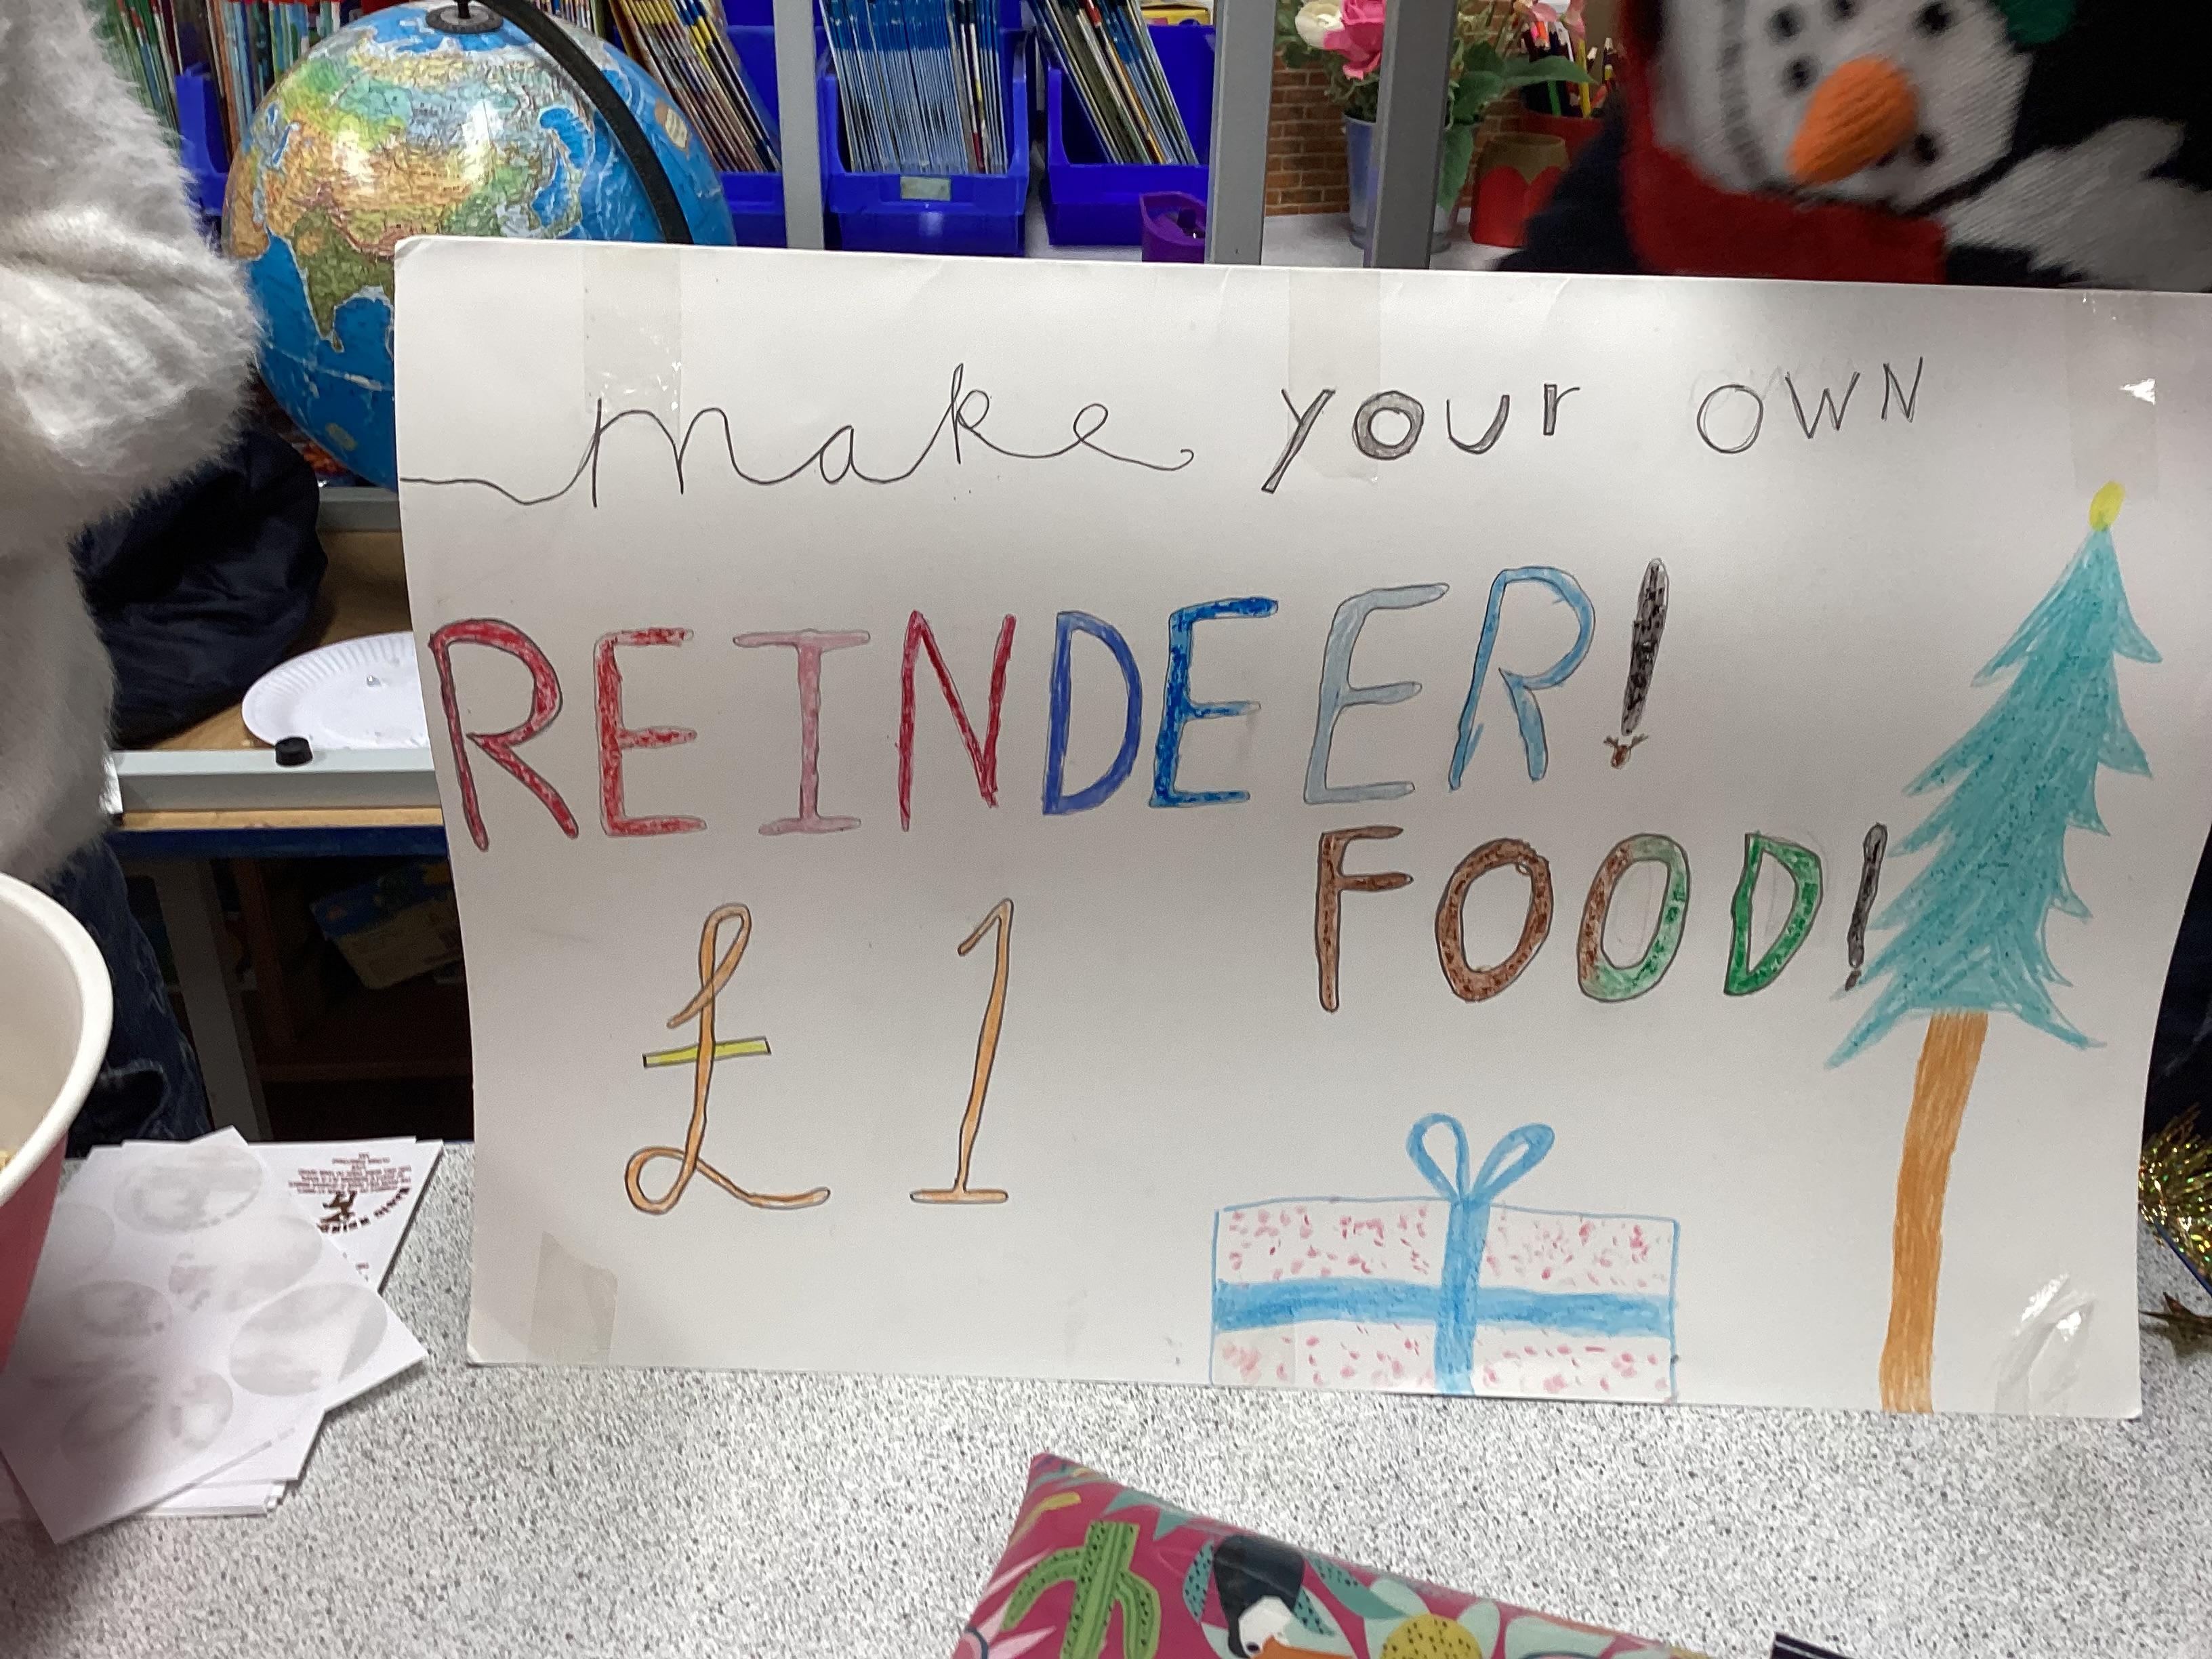 make your own
REINDEER!
FOOD!
£1